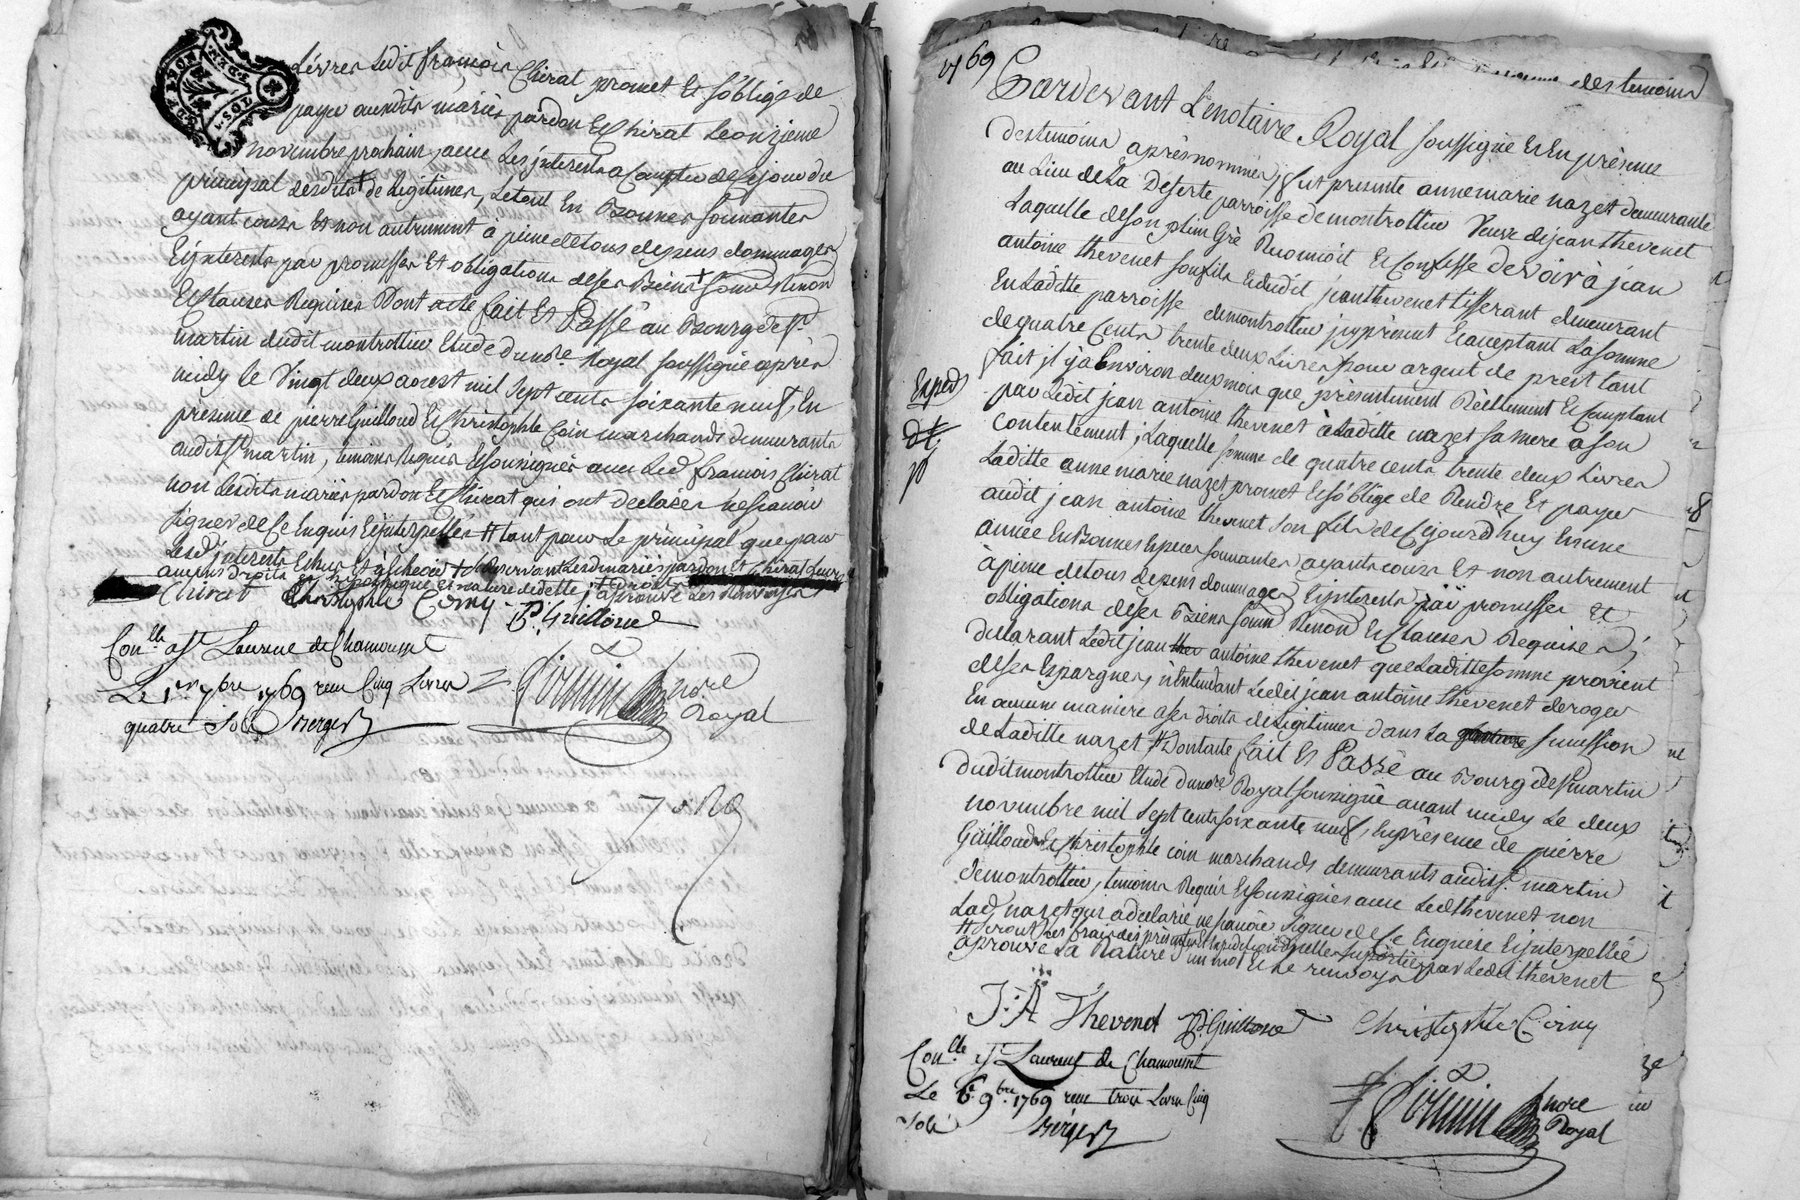 Livres Ledit françois Chirat promet Et s'oblige de
payer auxdits mariés pardon Et Chirat Le onzieme
novembre prochain, avec Les jnterets a Compter de ce jour du
principal desdits de Legitimes, Le tout En Bonnes sonnantes
ayant cours Et non autrement a peine de tous depens dommages
Et jnterets par promesses Et obligations de ses Biens + soum. Renon
Et Clauses Requises Dont acte fait Et Passé au Bourg de St
martin dudit montrottier Etude du nore Royal soussigné après
midy le Vingt deux aoust mil sept cents soixante neuf, En
presence de pierre Guilloud Et Christophle Coin marchands demeurants
audit St martin, temoins Requis Et soussignés avec Led. françois Chirat
non Lesdits mariés pardon Et Chirat qui ont declarer ne scavoir
signer de Ce Enquis Et jnterpellés # tant pour Le principal que pour
Lesd. jnterets Echus Et a Echeoir + se Reservant Lesd mariés pardon Et Chirat
au plus droits hipotheque et nature de dette, aprouvé Les Renvoys
Chirat Christophle Coiny P. Guilloud
Conlle a St Laurent de Chamousset
Le 1er 7bre 1769 reçu Cinq Livres
quatre sols Berger
Firmin nore
Royal
69
des temoins
Pardevant Le notaire Royal soussigné Et En présence
des temoins après nommés, fut presente anne marie nazet demeurante
au Lieu de La Deserte parroisse de montrottier Veuve de jean thevenet
Laquelle de son plein Gré Reconnoit Et Confesse devoir à jean
antoine thevenet son fils Et dudit jean thevenet tisserant demeurant
En Laditte parroisse demontrottier jcy présent Et acceptant La somme
de quatre Cents trente deux Livres pour argent de prest tant
fait jl y a Environ deux mois que présentement Réellement Et Comptant
par Ledit jean antoine thevenet à Laditte nazet sa mere a son
Contentement, Laquelle somme de quatre cents trente deux Livres
Laditte anne marie nazet promet Et s'oblige de Rendre Et payer
audit jean antoine thevenet son fils de Ce jourd'huy En une
année En Bonnes Especes sonnantes ayants cours Et non autrement
à peine de tous depens dommages Et jnterets par promesses Et
obligations de ses Biens soum Renon Et Clauses Requises,
declarant Ledit jean ther antoine thevenet que Laditte somme provient
de ses Epargnes, n'Entendant Ledit jean antoine thevenet deroger
En aucune maniere a ses droits de Legitimes dans La succession
de Laditte nazet # Dont acte fait Et Passé au Bourg de St martin
dudit montrottier Etude du nore Royal soussigné avant midy Le deux
novembre mil sept cents soixante neuf, En présence de pierre
Guilloud Et Christophle coin marchands demeurants audit St martin
demontrottier, temoins Requis Et soussignés avec Led thevenet non
Lad. nazet qui a declarée ne scavoir signer de Ce Enquise Et jnterpellée
# seront Les frais des présentes Et Expedition d'icelles supportés par Ledit thevenet
aprouvé La Rature un mot Et Le renvoy
J: A Thevenet P. Guilloud Christophle Coiny
Conlle a St Laurent de Chamousset
Le 6e 9bre 1769 reçu trois Livres Cinq
sols Berger
Firmin nore
Royal